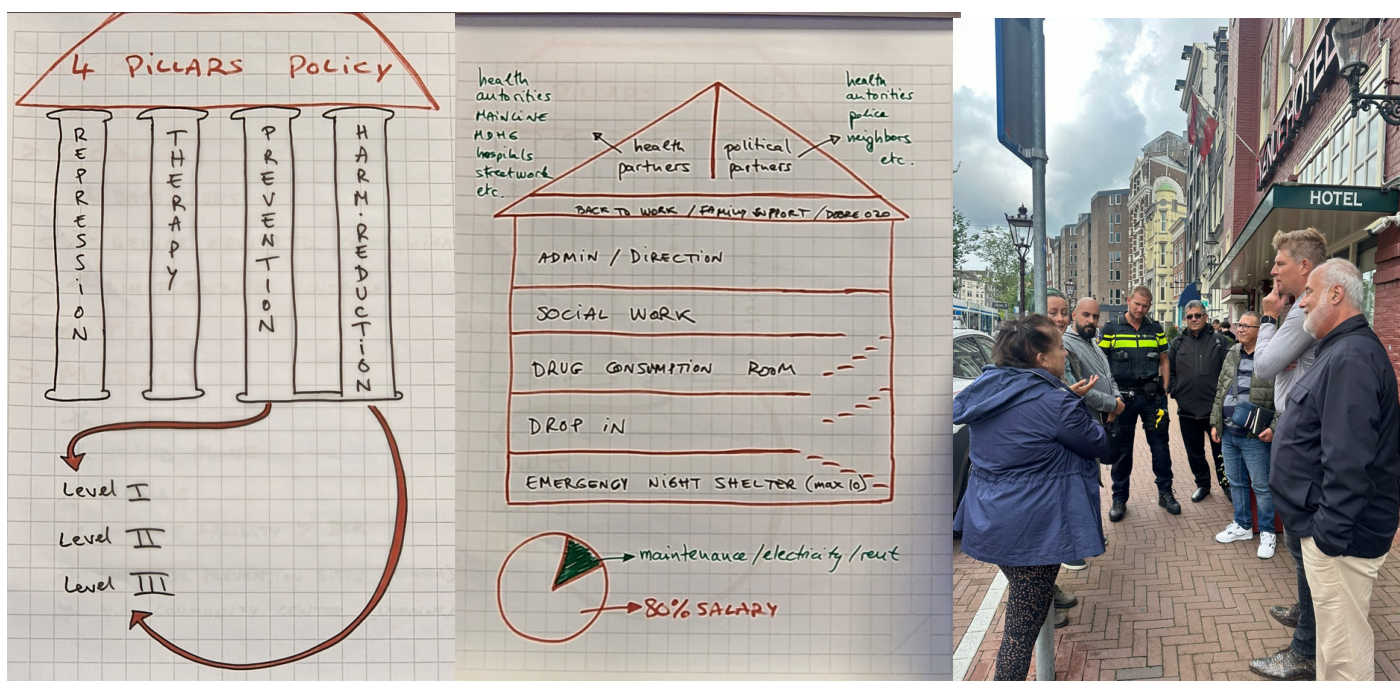 4 PILLARS POLICY
REPRESSION
THERAPY
PREVENTION
HARM.REDUCTION
Level I
Level II
Level III
health
autorities
MAINLINE
MDHG
hospitals
streetwork
etc.
health
partners
political
partners
health
autorities
police
neighbors
etc.
BACK TO WORK / FAMILY SUPPORT / DOBRE 020
ADMIN / DIRECTION
SOCIAL WORK
DRUG CONSUMPTION ROOM
DROP IN
EMERGENCY NIGHT SHELTER (max 10)
maintenance/electricity/rent
80% SALARY
HOTEL